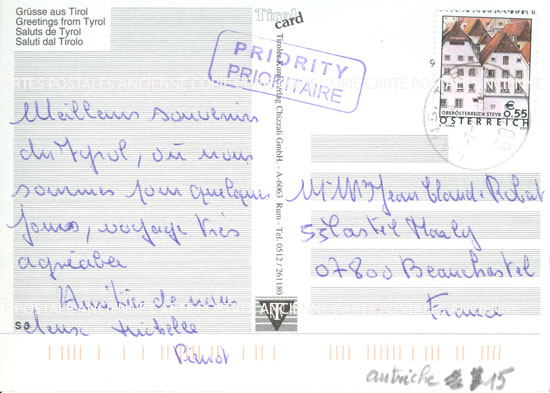 Grüsse aus Tirol
Greetings from Tyrol
Saluts de Tyrol
Saluti dal Tirolo
Tirol
card
PRIORITY
PRIORITAIRE
€ 0.55
OBERÖSTERREICH STEYR
ÖSTERREICH
Tiroler Kunstverlag Chizzali GmbH. - A-6063 Rum - Tel. 0512/261180
Meilleurs souvenirs
du Tyrol, où nous
sommes pour quelques
jours, voyage très
agréable
Amitiés de nous
deux Michelle
Pierrot
Mr Mme Jean Claude Robert
53 Castel
07800 Beauchastel
France
autriche 15